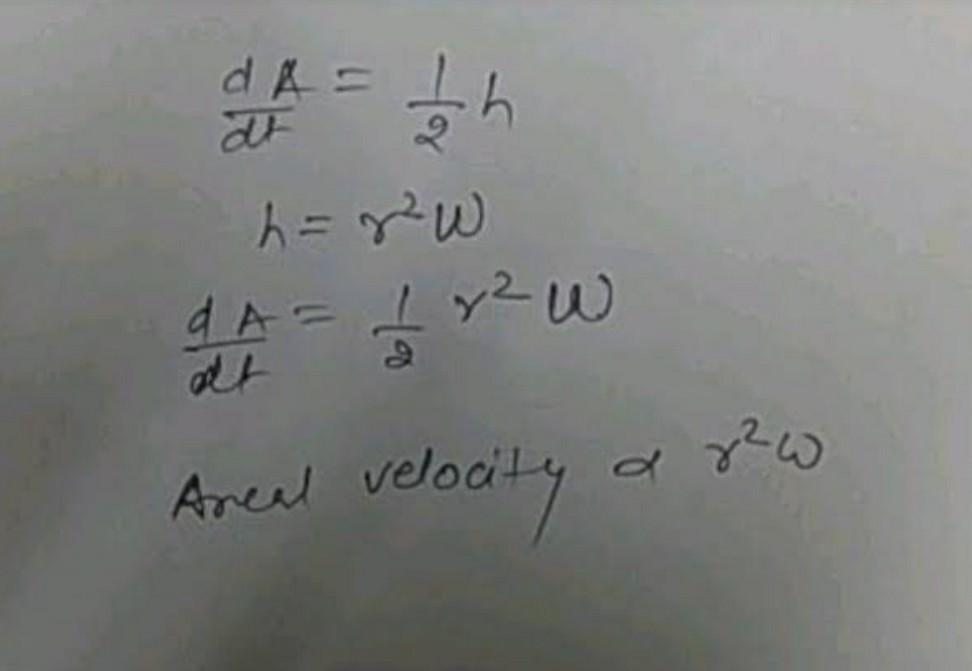 dA/dt = 1/2 h
h = r²ω
dA/dt = 1/2 r²ω
Areal velocity α r²ω